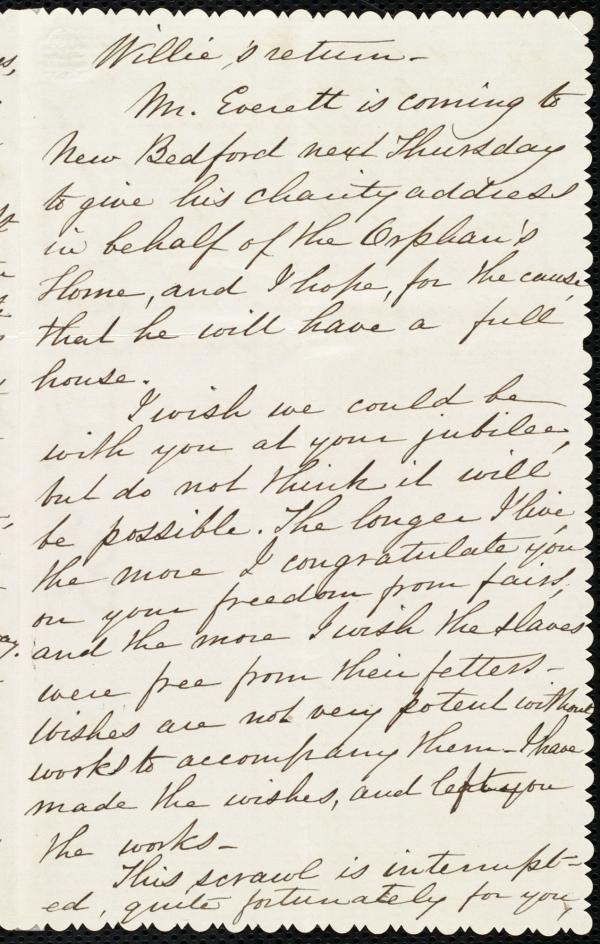 Willie's return -
Mr. Everett is coming to
New Bedford next Thursday
to give his charity address
in behalf of the Orphan's
Home, and I hope, for the cause,
that he will have a full
house.
I wish we could be
with you at your jubilee,
but do not think it will
be possible. The longer I live
the more I congratulate you
on your freedom from fairs,
and the more I wish the slaves
were free from their fetters -
Wishes are not very potent without
works to accompany them - I have
made the wishes, and left you
the works -
This scrawl is interrupt-
ed, quite fortunately for you,